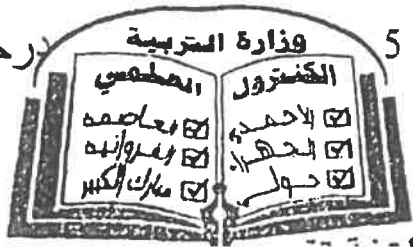 5
وزارة التربية
الكنترول العلمي
الاحمدي
الجهراء
حولي
العاصمه
الفروانيه
مبارك الكبير